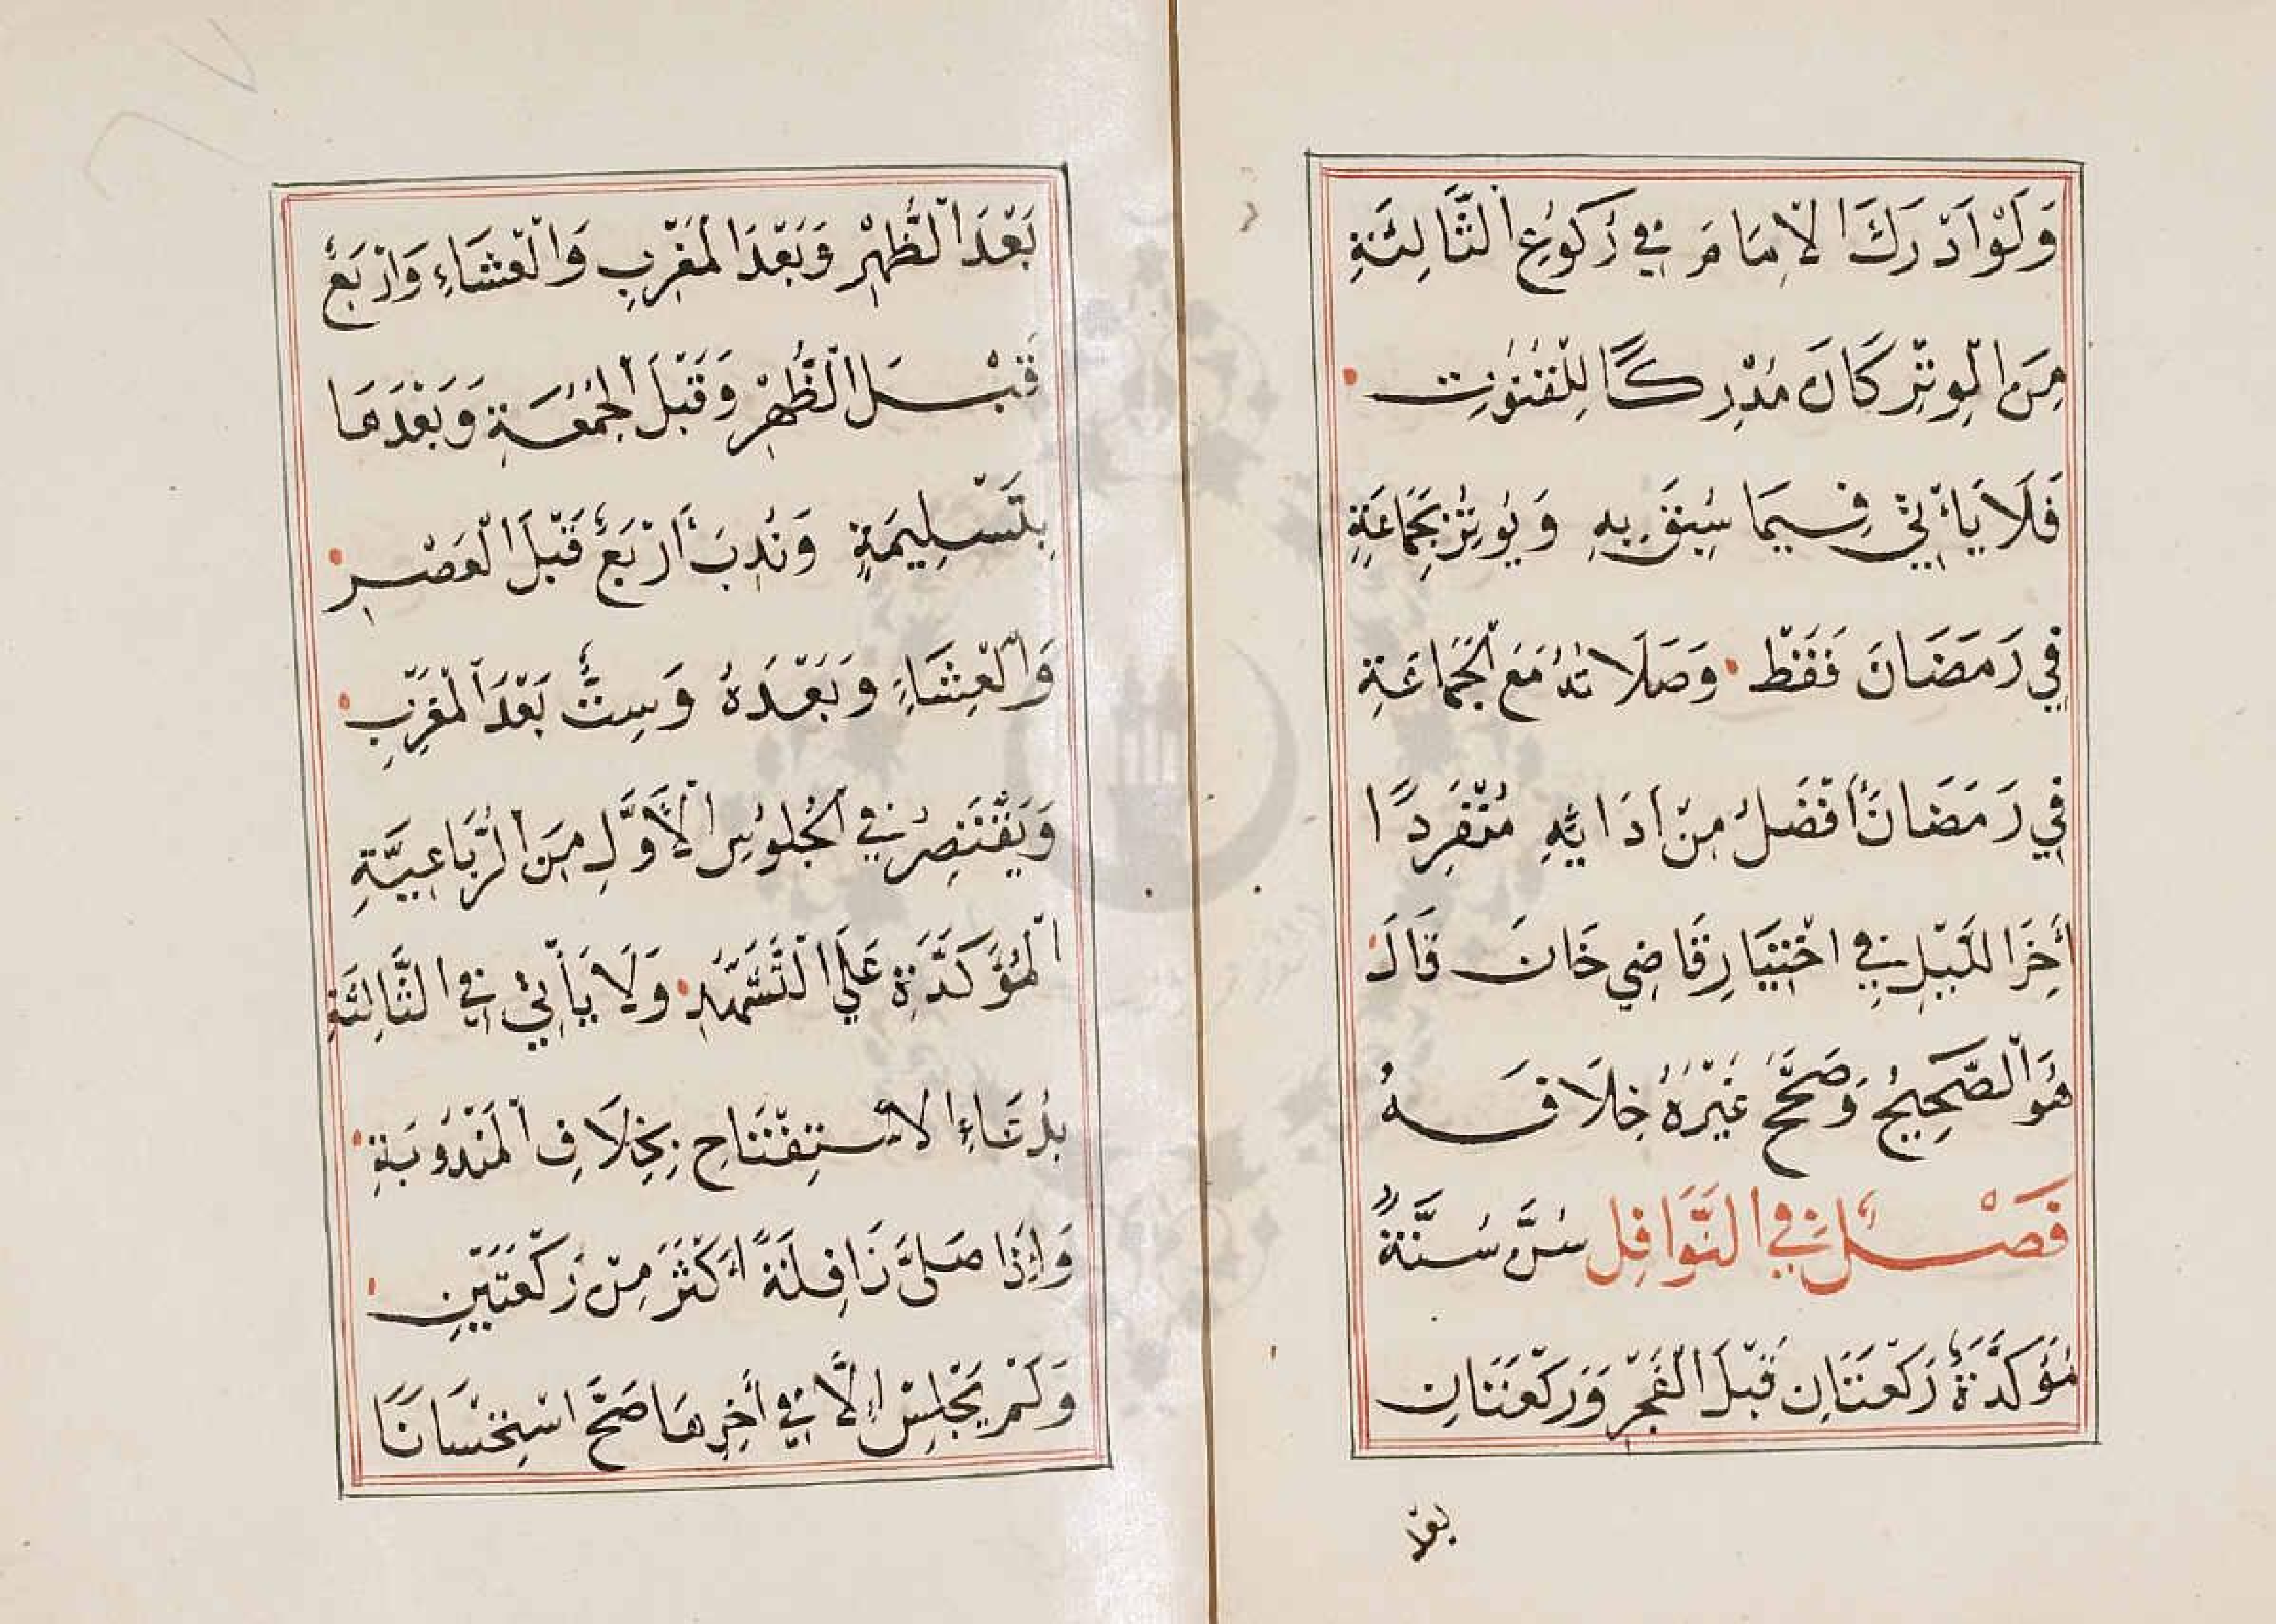 وَلَوْ اَدْرَكَ الْاِمَامَ فِي رُكُوعِ الثَّالِثَةِ
مِنَ الْوِتْرِ كَانَ مُدْرِكًا لِلْقُنُوتِ
فَلَا يَأْتِي فِيمَا سُبِقَ بِهِ وَيُوتِرُ بِجَمَاعَةٍ
فِي رَمَضَانَ فَقَطْ وَصَلَاتُهُ مَعَ الْجَمَاعَةِ
فِي رَمَضَانَ أَفْضَلُ مِنْ اَدَائِهِ مُنْفَرِدًا
أَخِرَ اللَّيْلِ فِي اخْتِيَارِ قَاضِي خَانَ قَالَ
هُوَ الصَّحِيحُ وَصَحَّحَ غَيْرُهُ خِلَافَهُ
فَصْلٌ فِي النَّوَافِلِ سُنَّ سُنَّةً
مُؤَكَّدَةً رَكْعَتَانِ قَبْلَ الْفَجْرِ وَرَكْعَتَانِ
بعد
بَعْدَ الظُّهْرِ وَبَعْدَ الْمَغْرِبِ وَالْعِشَاءِ وَاَرْبَعٌ
قَبْلَ الظُّهْرِ وَقَبْلَ الْجُمُعَةِ وَبَعْدَهَا
بِتَسْلِيمَةٍ وَنُدِبَ أَرْبَعٌ قَبْلَ الْعَصْرِ
وَالْعِشَاءِ وَبَعْدَهُ وَسِتٌّ بَعْدَ الْمَغْرِبِ
وَيَقْتَصِرُ فِي الْجُلُوسِ الْأَوَّلِ مِنَ الرُّبَاعِيَّةِ
الْمُؤَكَّدَةِ عَلَى التَّشَهُّدِ وَلَا يَأْتِي فِي الثَّالِثَةِ
بِدُعَاءِ الْاسْتِفْتَاحِ بِخِلَافِ الْمَنْدُوبَةِ
وَإِذَا صَلَّى نَافِلَةً أَكْثَرَ مِنْ رَكْعَتَيْنِ
وَلَمْ يَجْلِسْ إِلَّا فِي أَخِرِهَا صَحَّ اسْتِحْسَانًا